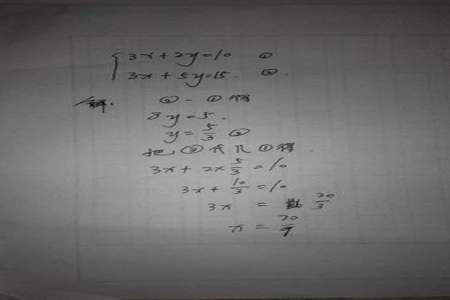 3x + 2y = 10 ①
3x + 5y = 15. ②
解. ② - ① 得
3y = 5.
y = 5/3 ③
把 ③ 代入 ① 得.
3x + 2 × 5/3 = 10
3x + 10/3 = 10
3x = 20/3
x = 20/9